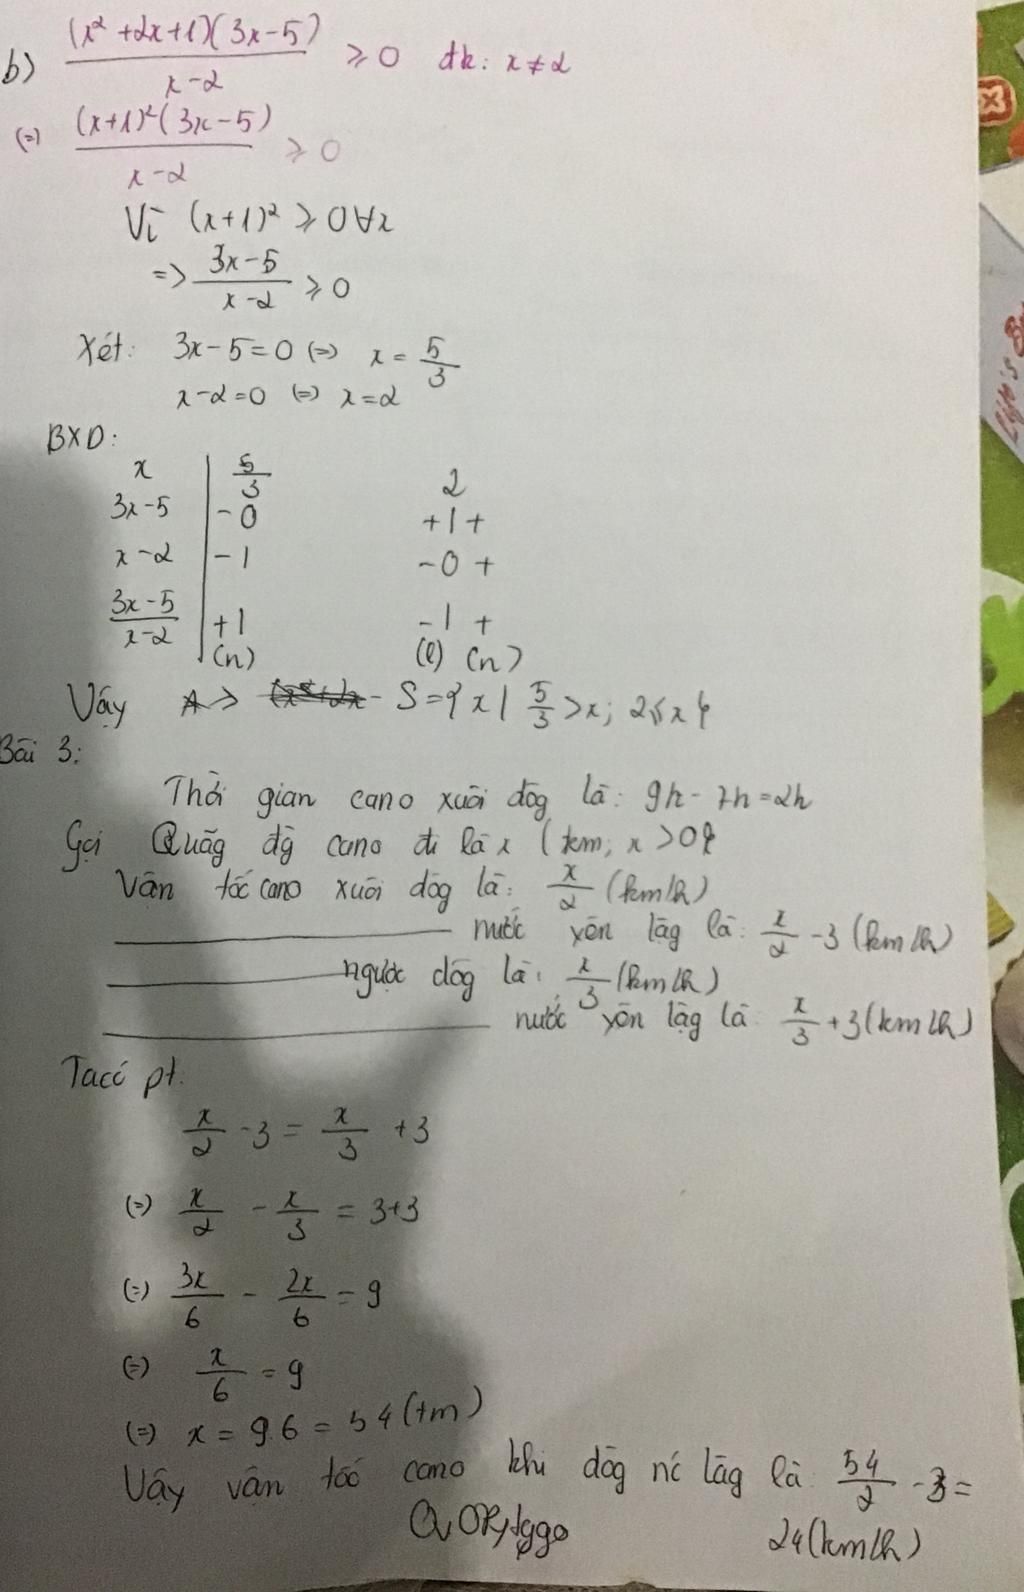 b) (x² + 2x + 1)(3x - 5) / x - 2 ≥ 0 đk: x ≠ 2
(=) (x+1)²(3x - 5) / x - 2 ≥ 0
Vì (x+1)² ≥ 0 ∀x
=> 3x - 5 / x - 2 ≥ 0
Xét: 3x - 5 = 0 (=) x = 5/3
x - 2 = 0 (=) x = 2
BXD:
x | 5/3 2
3x - 5 | - 0 + | +
x - 2 | - | - 0 +
3x - 5 / x - 2 | + | - | +
(n) (l) (n)
Vậy A > - S = { x | 5/3 > x; 2 ≤ x }
Bài 3:
Thời gian cano xuôi dõg là: 9h - 7h = 2h
Gọi Quãg đg cano đi là x (km; x > 0)
Vận tốc cano xuôi dõg là: x/2 (km/h)
nước yên lặg là: x/2 - 3 (km/h)
ngược dõg là: x/3 (km/h)
nước yên lặg là x/3 + 3 (km/h)
Ta có pt:
x/2 - 3 = x/3 + 3
(=) x/2 - x/3 = 3+3
(=) 3x/6 - 2x/6 = 9
(=) x/6 = 9
(=) x = 9.6 = 54 (km)
Vậy vận tốc cano khi dõg nc lặg là 54/2 - 3 =
24 (km/h)